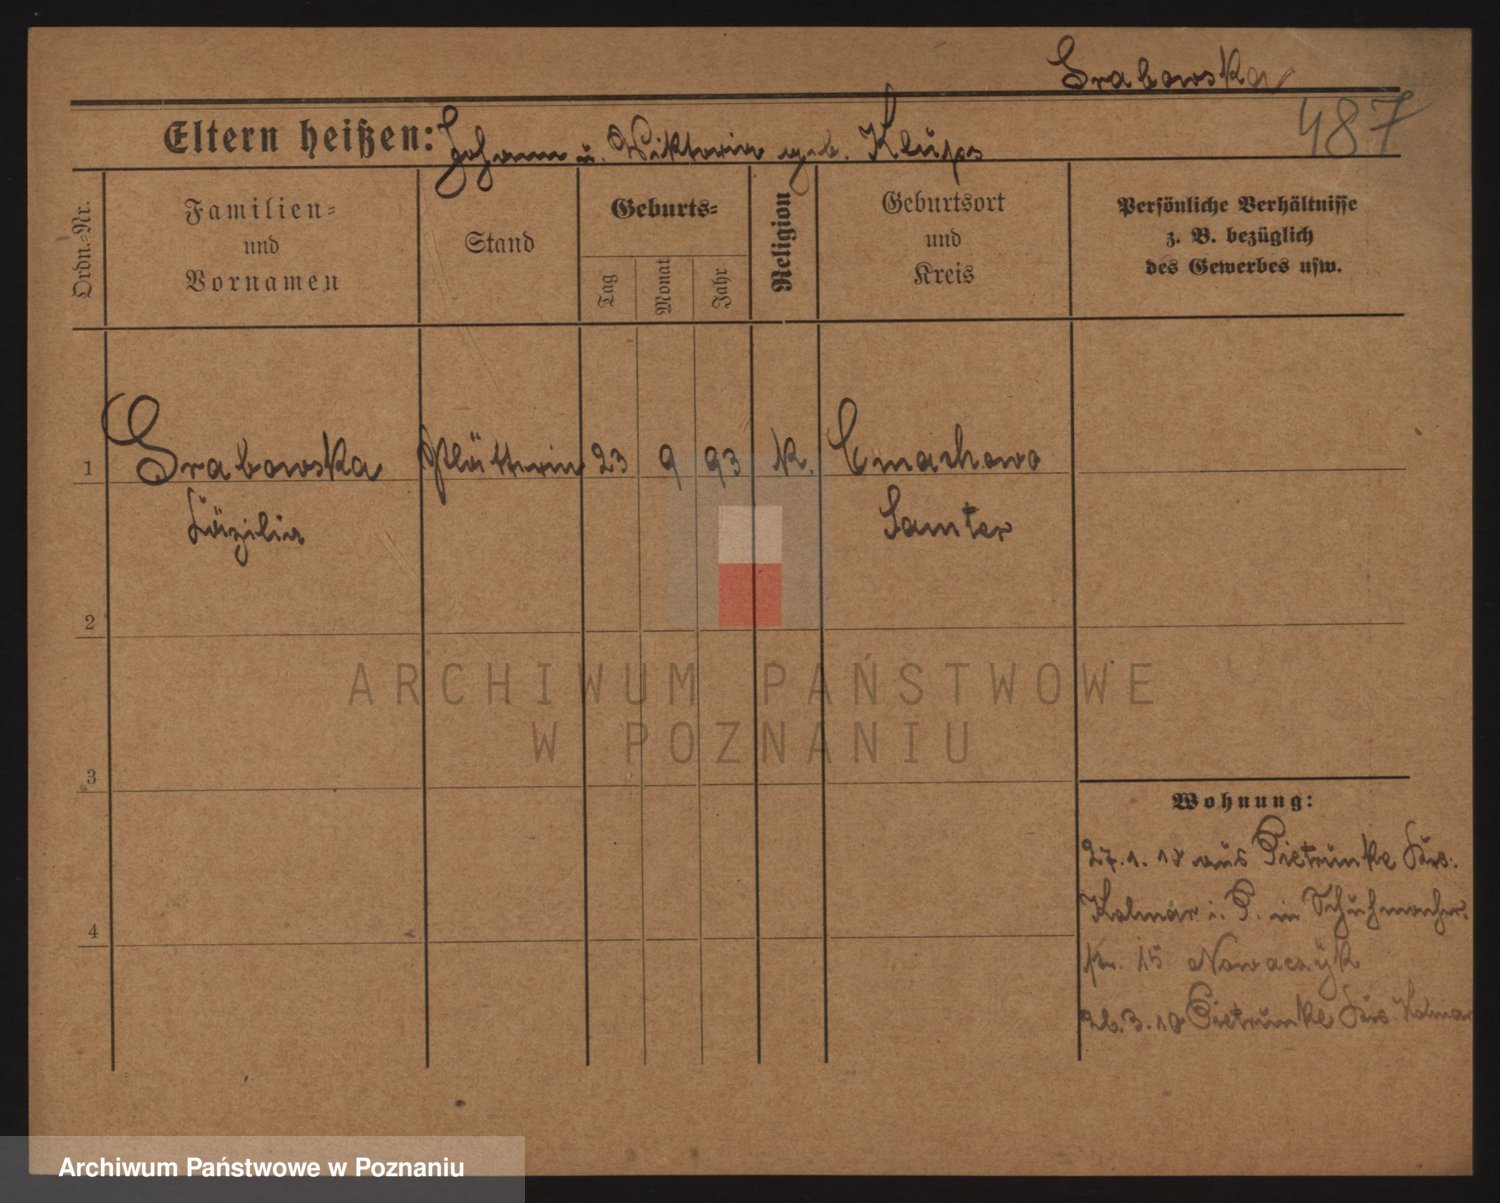 Grabowska
487
Eltern heißen: Johann u. Wiktoria geb. Klups
Ordn.-Nr.
Familien-
und
Vornamen
Stand
Geburts-
Tag
Monat
Jahr
Religion
Geburtsort
und
Kreis
Persönliche Verhältnisse
z. B. bezüglich
des Gewerbes usw.
1 Grabowska Plätterin 23 9 93 K. Cmachowo
Zäzilia Samter
2
ARCHIWUM PAŃSTWOWE
W POZNANIU
3
Wohnung:
27.1.18 aus Pietrunke Krs.
Kolmar i. P. in Schuhmacher
str. 15 Nowaczyk
26.3.18 Pietrunke Krs. Kolmar
4
Archiwum Państwowe w Poznaniu